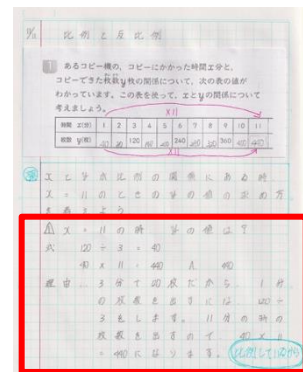 比例と反比例
1 あるコピー機の、コピーにかかった時間x分と、
コピーできた枚数y枚の関係について、次の表の値が
わかっています。この表を使って、xとyの関係について
考えましょう。
×11
時間 x(分) 1 2 3 4 5 6 7 8 9 10 11
枚数 y(枚) 40 80 120 160 200 240 280 320 360 400 440
×11
xとyが比例の関係にある時
x=11のときのyの値の求め方
を考えよう
x=11の時 yの値は?
式 120÷3=40
40×11=440 A 440
理由 3分で120枚だから、1分
の枚数を出すには 120÷
3をします。11分の時の
枚数を出すので 40×11
=440になります。
比例しているから